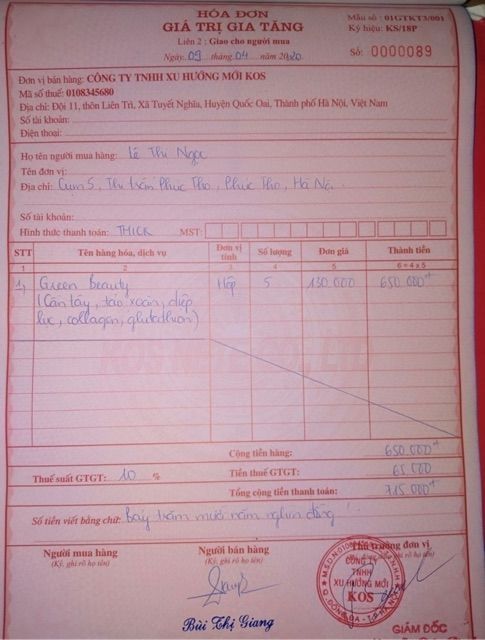 HÓA ĐƠN
GIÁ TRỊ GIA TĂNG
Liên 2 : Giao cho người mua
Ngày 09 tháng 04 năm 2020
Mẫu số : 01GTKT3/001
Ký hiệu: KS/18P
Số: 0000089
Đơn vị bán hàng: CÔNG TY TNHH XU HƯỚNG MỚI KOS
Mã số thuế: 0108345680
Địa chỉ: Đội 11, thôn Liên Trì, Xã Tuyết Nghĩa, Huyện Quốc Oai, Thành phố Hà Nội, Việt Nam
Số tài khoản:
Điện thoại:
Họ tên người mua hàng: Lê Thị Ngọc
Tên đơn vị:
Địa chỉ: Cụm 5, Thị trấn Phúc Thọ, Phúc Thọ, Hà Nội.
Số tài khoản:
Hình thức thanh toán: TM/CK MST:
STT Tên hàng hóa, dịch vụ Đơn vị tính Số lượng Đơn giá Thành tiền
1 2 3 4 5 6=4x5
1, Green Beauty Hộp 5 130.000 650.000đ
(Cần tây, táo xoắn, diệp
lục, collagen, glutathion)
Cộng tiền hàng: 650.000đ
Thuế suất GTGT: 10 % Tiền thuế GTGT: 65.000
Tổng cộng tiền thanh toán: 715.000đ
Số tiền viết bằng chữ: Bảy trăm mười năm nghìn đồng
Người mua hàng Người bán hàng Thủ trưởng đơn vị
(Ký, ghi rõ họ tên) (Ký, ghi rõ họ tên)
CÔNG TY
TNHH
XU HƯỚNG MỚI
KOS
Bùi Thị Giang
GIÁM ĐỐC